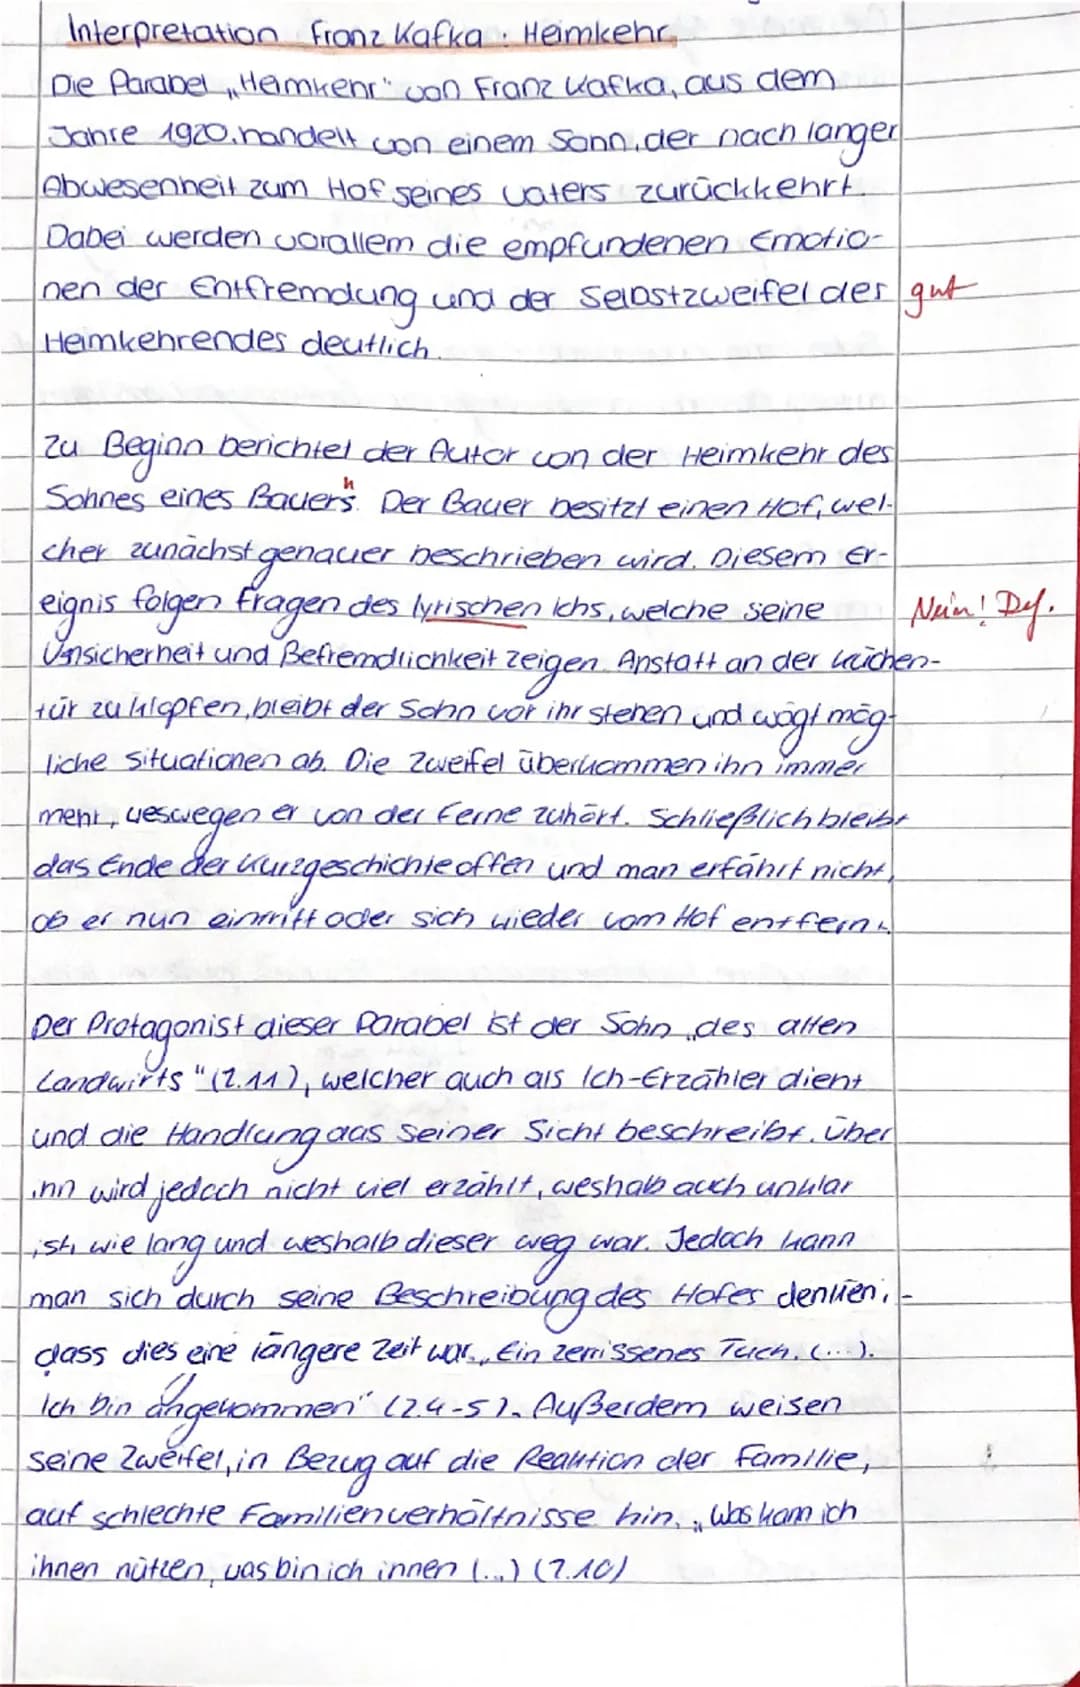 Interpretation Franz Kafka: Heimkehr.
Die Parabel „Heimkehr" von Franz Kafka, aus dem
Jahre 1920, handelt von einem Sohn, der nach langer
Abwesenheit zum Hof seines Vaters zurückkehrt.
Dabei werden vorallem die empfundenen Emotio-
nen der Entfremdung und der Selbstzweifel des gut
Heimkehrendes deutlich.
Zu Beginn berichtet der Autor von der Heimkehr des
Sohnes eines Bauers. n Der Bauer besitzt einen Hof, wel-
cher zunächst genauer beschrieben wird. Diesem Er-
eignis folgen Fragen des lyrischen Ichs, welche seine Nein! Def.
Unsicherheit und Befremdlichkeit zeigen. Anstatt an der Küchen-
tür zu klopfen, bleibt der Sohn vor ihr stehen und wägt mög-
liche Situationen ab. Die Zweifel überkommen ihn immer
mehr, weswegen er von der Ferne zuhört. Schließlich bleibt
das Ende der Kurzgeschichte offen und man erfährt nicht,
ob er nun eintritt oder sich wieder vom Hof entfernt.
Der Protagonist dieser Parabel ist der Sohn „des alten
Landwirts" (Z.11), welcher auch als Ich-Erzähler dient
und die Handlung aus seiner Sicht beschreibt. Über
ihn wird jedoch nicht viel erzählt, weshalb auch unklar
ist, wie lang und weshalb dieser weg war. Jedoch kann
man sich durch seine Beschreibung des Hofes denken, -
dass dies eine längere Zeit war. „Ein zerrissenes Tuch. (...).
Ich bin angekommen" (Z.4-5). Außerdem weisen
seine Zweifel, in Bezug auf die Reaktion der Familie,
auf schlechte Familienverhältnisse hin. „Was kann ich
ihnen nützen, was bin ich ihnen (...) (Z.10)